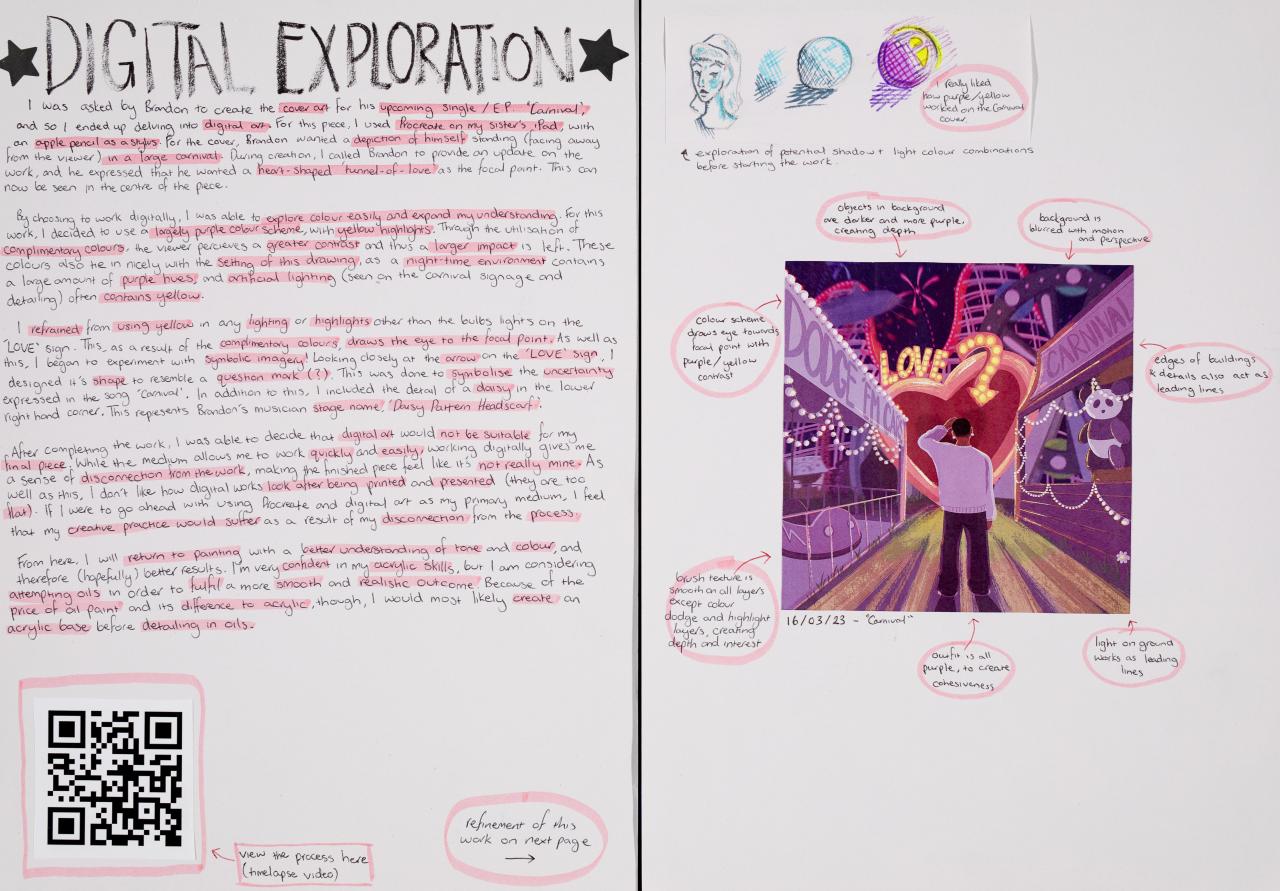 DIGITAL EXPLORATION
I was asked by Brandon to create the cover art for his upcoming single / E.P. 'Carnival',
and so I ended up delving into digital art. For this piece, I used Procreate on my sister's iPad, with
an apple pencil as a stylus. For the cover, Brandon wanted a depiction of himself standing (facing away
from the viewer) in a large carnival. During creation, I called Brandon to provide an update on the
work, and he expressed that he wanted a heart-shaped 'tunnel-of-love' as the focal point. This can
now be seen in the centre of the piece.
By choosing to work digitally, I was able to explore colour easily and expand my understanding. For this
work, I decided to use a largely purple colour scheme, with yellow highlights. Through the utilisation of
complimentary colours, the viewer percieves a greater contrast and thus a larger impact is left. These
colours also tie in nicely with the setting of this drawing, as a night-time environment contains
a large amount of purple hues, and artificial lighting (seen on the carnival signage and
detailing) often contains yellow.
I refrained from using yellow in any lighting or highlights other than the bulbs lights on the
'LOVE' sign. This, as a result of the complimentary colours, draws the eye to the focal point. As well as
this, I began to experiment with symbolic imagery! Looking closely at the arrow on the 'LOVE' sign, I
designed it's shape to resemble a question mark (?). This was done to symbolise the uncertainty
expressed in the song 'Carnival'. In addition to this, I included the detail of a daisy in the lower
right hand corner. This represents Brandon's musician stage name, 'Daisy Pattern Headscarf'.
After completing the work, I was able to decide that digital art would not be suitable for my
final piece. While the medium allows me to work quickly and easily, working digitally gives me
a sense of disconnection from the work, making the finished piece feel like it's not really mine. As
well as this, I don't like how digital works look after being printed and presented (they are too
flat). If I were to go ahead with using Procreate and digital art as my primary medium, I feel
that my creative practice would suffer as a result of my disconnection from the process.
From here, I will return to painting with a better understanding of tone and colour, and
therefore (hopefully) better results. I'm very confident in my acrylic skills, but I am considering
attempting oils in order to fulfil a more smooth and realistic outcome. Because of the
price of oil paint and its difference to acrylic, though, I would most likely create an
acrylic base before detailing in oils.
view the process here
(timelapse video)
refinement of this
work on next page
I really liked
how purple/yellow
worked on the Carnival
cover.
exploration of potential shadow + light colour combinations
before starting the work.
objects in background
are darker and more purple,
creating depth
background is
blurred with motion
and perspective
colour scheme
draws eye towards
focal point with
purple/yellow
contrast
DODGE 'EM CARS
LOVE
CARNIVAL
edges of buildings
& details also act as
leading lines
brush texture is
smooth on all layers
except colour
dodge and highlight
layers, creating
depth and interest
16/03/23 - "Carnival"
outfit is all
purple, to create
cohesiveness
light on ground
works as leading
lines